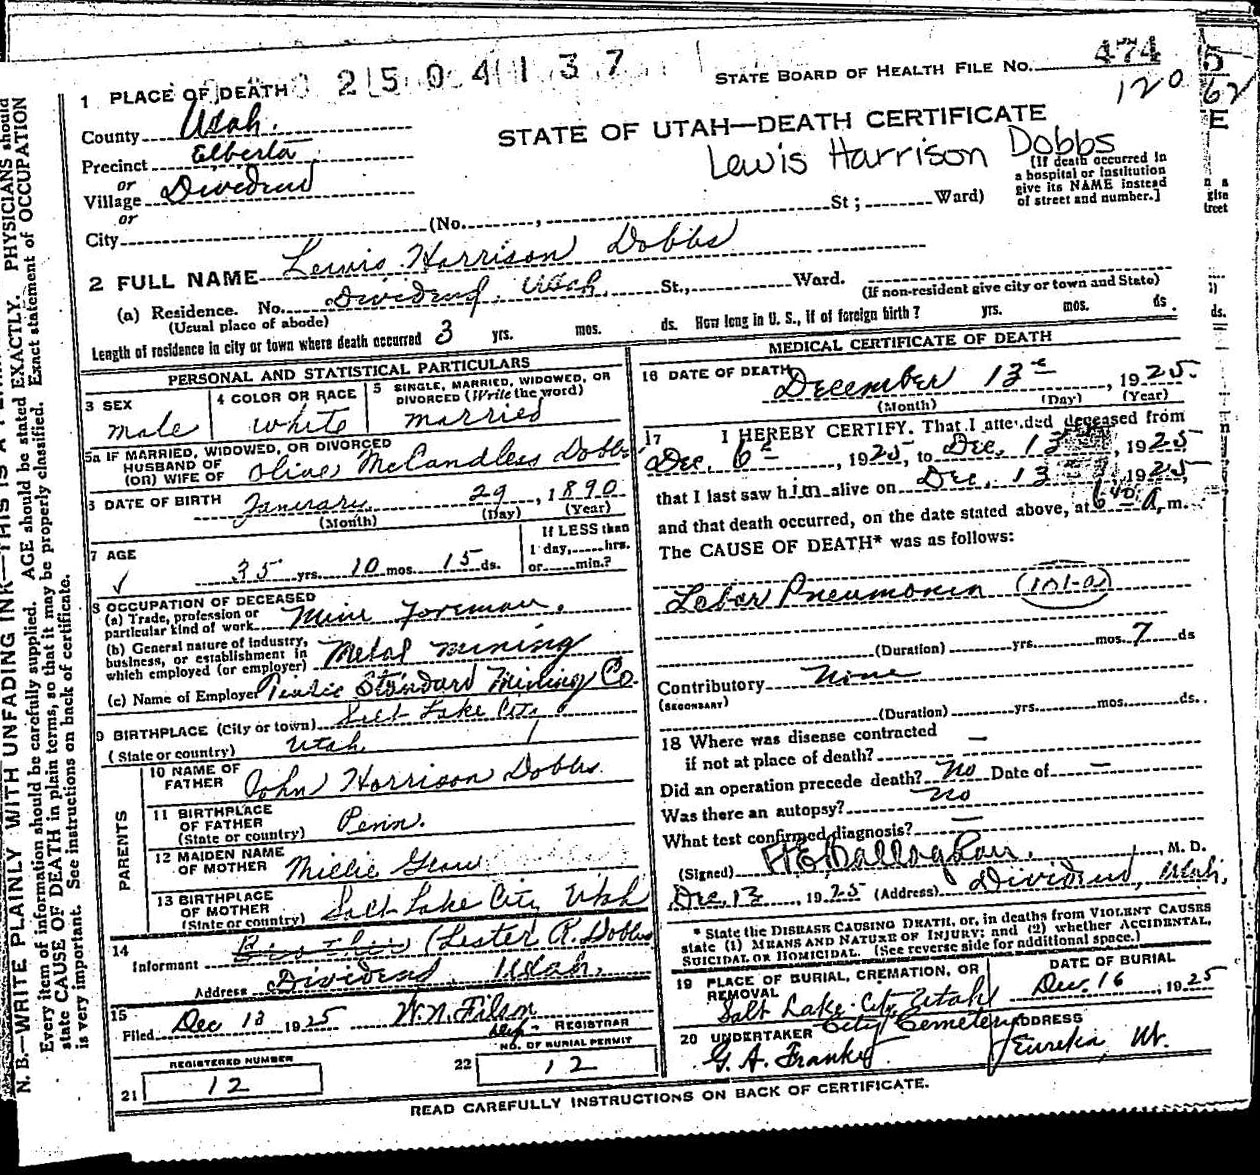 2 5 0 4 1 3 7
STATE BOARD OF HEALTH FILE NO. 474
120
1 PLACE OF DEATH
County Utah.
STATE OF UTAH—DEATH CERTIFICATE
Lewis Harrison Dobbs
Precinct Elberta
or
Village Dividend
or
City (No. , St; Ward)
[If death occurred in
a hospital or institution
give its NAME instead
of street and number.]
2 FULL NAME Lewis Harrison Dobbs
(a) Residence. No. Dividend, Utah St., Ward.
(Usual place of abode)
(If non-resident give city or town and State)
Length of residence in city or town where death occurred 3 yrs. mos. ds. How long in U. S., if of foreign birth? yrs. mos. ds.
PERSONAL AND STATISTICAL PARTICULARS
3 SEX
male
4 COLOR OR RACE
white
5 SINGLE, MARRIED, WIDOWED, OR
DIVORCED (Write the word)
married
5a IF MARRIED, WIDOWED, OR DIVORCED
HUSBAND OF
(OR) WIFE OF Olive McCandless Dobbs
6 DATE OF BIRTH January 29, 1890
(Month) (Day) (Year)
7 AGE
35 yrs. 10 mos. 15 ds.
If LESS than
1 day, hrs.
or min.?
8 OCCUPATION OF DECEASED
(a) Trade, profession or
particular kind of work Mine Foreman.
(b) General nature of industry,
business, or establishment in
which employed (or employer) Metal mining
(c) Name of Employer Tintic Standard Mining Co.
9 BIRTHPLACE (City or town) Salt Lake City
(State or country) Utah
PARENTS
10 NAME OF
FATHER John Harrison Dobbs.
11 BIRTHPLACE
OF FATHER
(State or country) Penn.
12 MAIDEN NAME
OF MOTHER Millie
13 BIRTHPLACE
OF MOTHER
(State or country) Salt Lake City Utah
14
Informant Brother (Lester R. Dobbs
Address Dividend, Utah.
15
Filed Dec 13 1925 W. N. Filson
REGISTRAR
REGISTERED NUMBER
21 12
NO. OF BURIAL PERMIT
22 12
MEDICAL CERTIFICATE OF DEATH
16 DATE OF DEATH
December 13, 1925.
(Month) (Day) (Year)
17 I HEREBY CERTIFY. That I attended deceased from
Dec. 6, 1925, to Dec. 13, 1925
that I last saw him alive on Dec. 13, 1925,
and that death occurred, on the date stated above, at 6 40 A. m.
The CAUSE OF DEATH* was as follows:
Lobar Pneumonia (101-a)
(Duration) yrs. mos. 7 ds
Contributory None
(SECONDARY)
(Duration) yrs. mos. ds.
18 Where was disease contracted
if not at place of death? —
Did an operation precede death? No Date of —
Was there an autopsy? No
What test confirmed diagnosis? —
(Signed) , M. D.
Dec. 13, 1925 (Address) Dividend, Utah.
* State the DISEASE CAUSING DEATH, or, in deaths from VIOLENT CAUSES
state (1) MEANS AND NATURE OF INJURY; and (2) whether ACCIDENTAL,
SUICIDAL OR HOMICIDAL. (See reverse side for additional space.)
19 PLACE OF BURIAL, CREMATION, OR
REMOVAL
Salt Lake City Utah
City Cemetery
DATE OF BURIAL
Dec. 16, 1925
20 UNDERTAKER
G. A. Franke
ADDRESS
Eureka, Ut.
READ CAREFULLY INSTRUCTIONS ON BACK OF CERTIFICATE.
N. B.—WRITE PLAINLY WITH UNFADING INK—THIS IS A
Every item of information should be carefully supplied. AGE should be stated EXACTLY. PHYSICIANS should
state CAUSE OF DEATH in plain terms, so that it may be properly classified. Exact statement of OCCUPATION
is very important. See instructions on back of certificate.